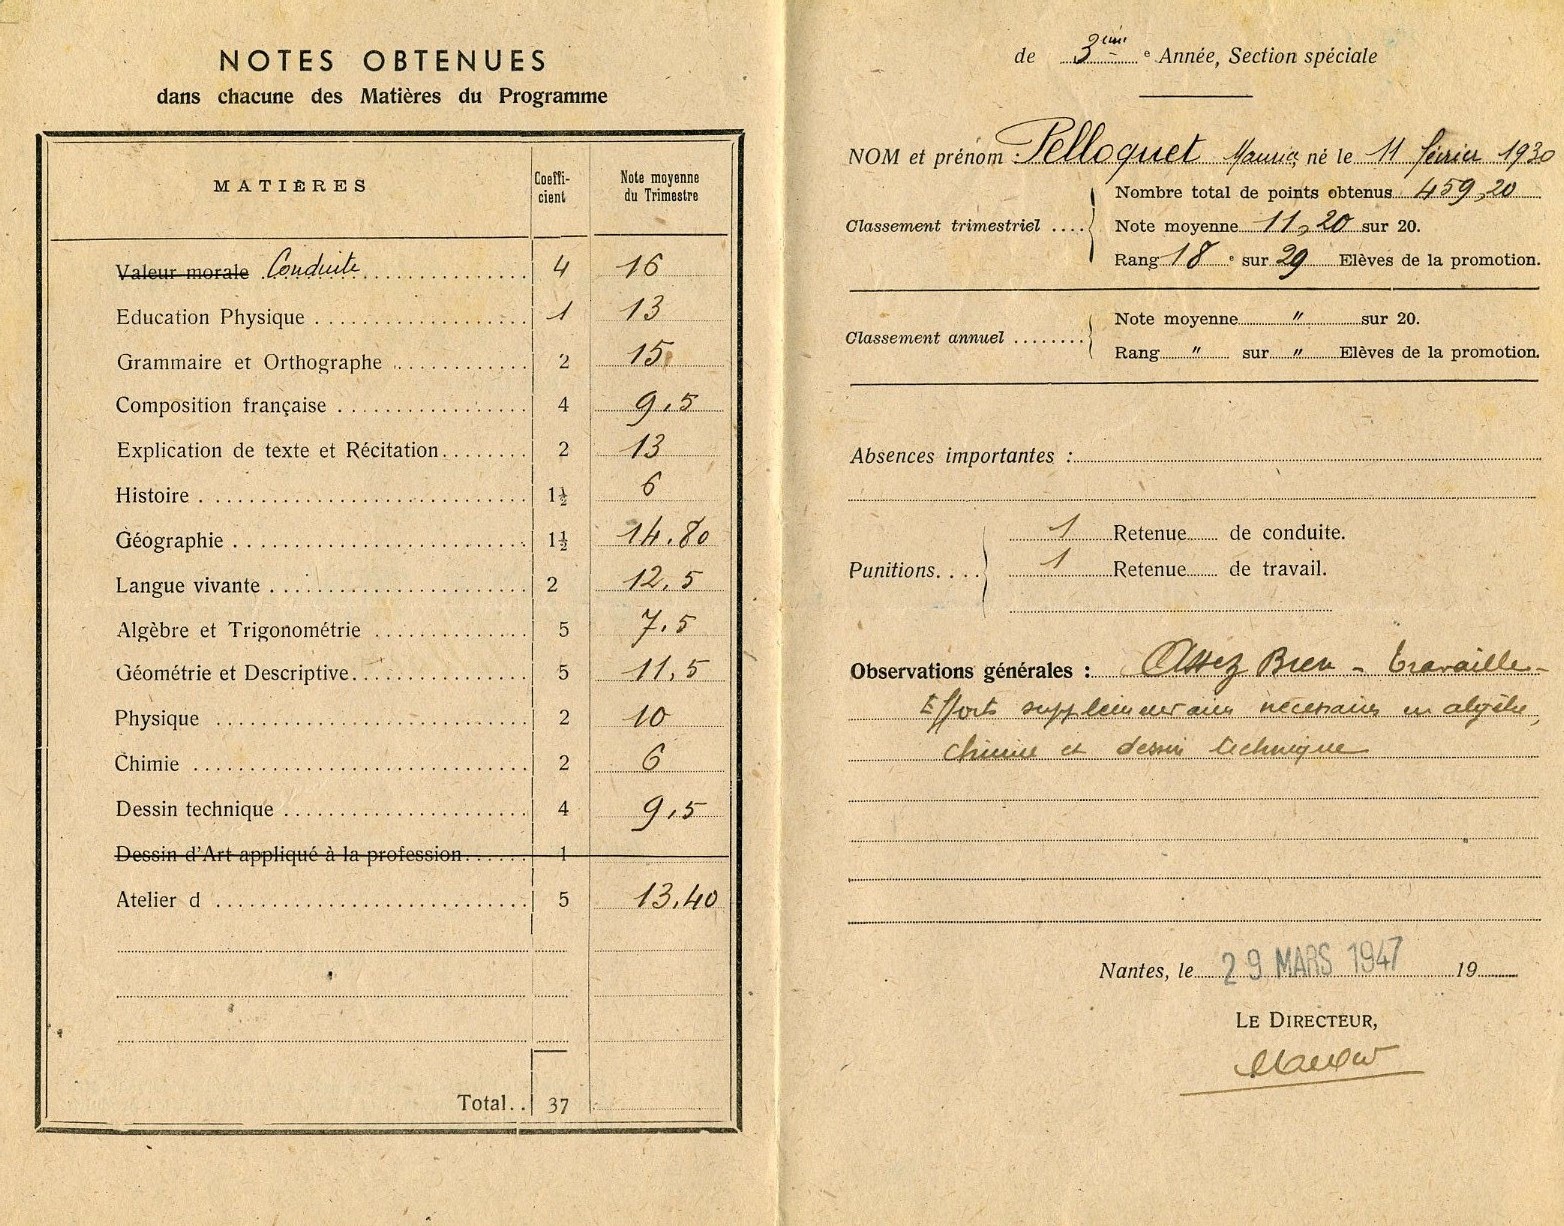 NOTES OBTENUES
dans chacune des Matières du Programme
MATIÈRES Coeffi-cient Note moyenne du Trimestre
Valeur morale Conduite 4 16
Education Physique 1 13
Grammaire et Orthographe 2 15
Composition française 4 9,5
Explication de texte et Récitation 2 13
Histoire 1½ 6
Géographie 1½ 14.80
Langue vivante 2 12,5
Algèbre et Trigonométrie 5 7.5
Géométrie et Descriptive 5 11,5
Physique 2 10
Chimie 2 6
Dessin technique 4 9,5
Dessin d'Art appliqué à la profession 1
Atelier d 5 13.40
Total 37
de 3ème e Année, Section spéciale
NOM et prénom : Pelloquet Maurice né le 11 février 1930
Nombre total de points obtenus 459,20
Classement trimestriel Note moyenne 11,20 sur 20.
Rang 18 e sur 29 Elèves de la promotion.
Note moyenne " sur 20.
Classement annuel
Rang " sur " Elèves de la promotion.
Absences importantes :
1 Retenue de conduite.
Punitions
1 Retenue de travail.
Observations générales : Assez Bien - travaille -
Efforts supplémentaires nécessaires en algèbre,
chimie et dessin technique
Nantes, le 29 MARS 1947 19
LE DIRECTEUR,